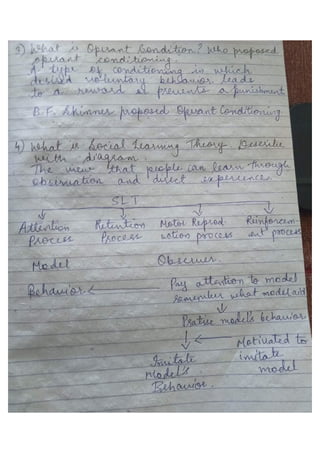 3) What is Operant Condition? Who proposed
operant conditioning.
A type of conditioning in which
desired voluntary behavior leads
to a reward or prevents a punishment
B.F. Skinner proposed Operant Conditioning
4) What is Social Learning Theory. Describe
with diagram.
The view that people can learn through
observation and direct experience
SLT
Attention Retention Motor Reprod- Reinforcem-
Process Process uction process ent process
Model Observer.
Behavior Pay attention to model
remember what model did
Pratise model's behavior
Motivated to
Imitate imitate
Model's model
Behavior.